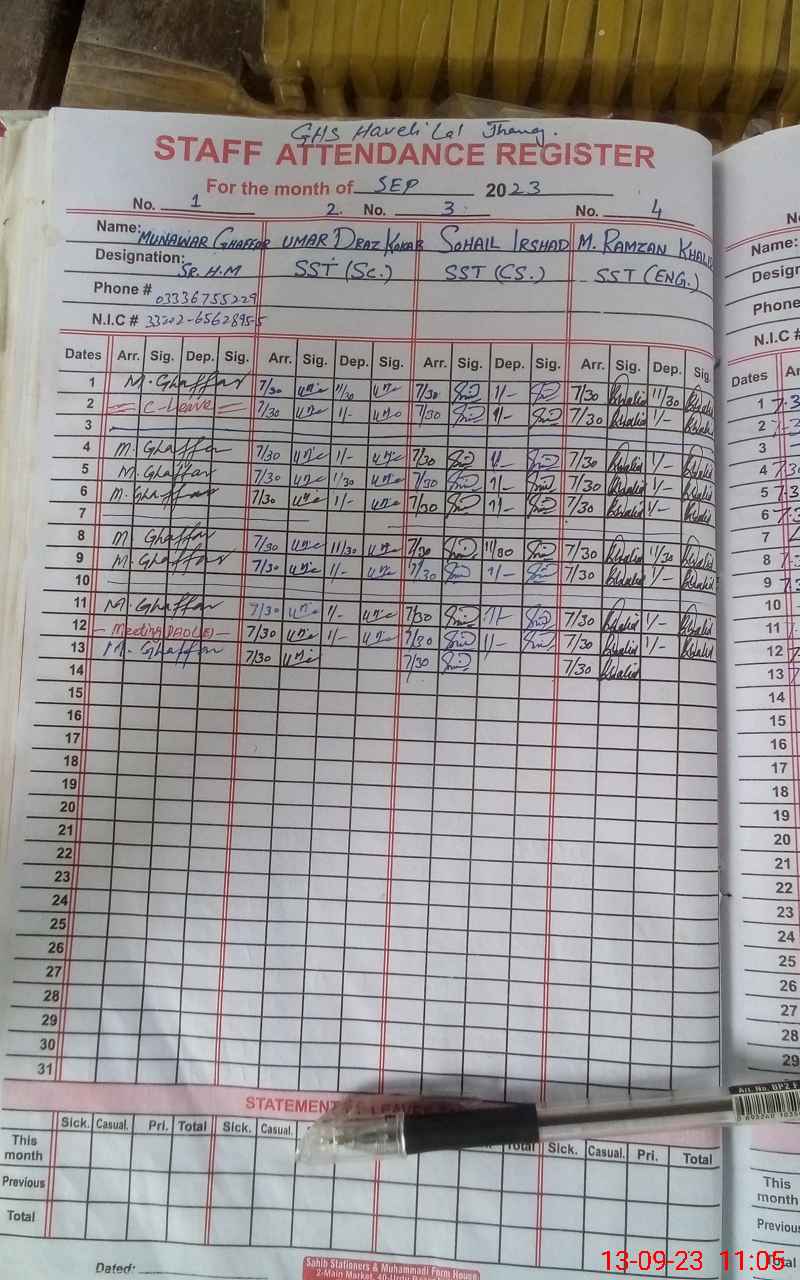 GHS Haveli Lal Jhang.
STAFF ATTENDANCE REGISTER
For the month of SEP 2023
No. 1 2. No. 3 No. 4
Name: MUNAWAR GHAFFAR UMAR DRAZ KOKAB SOHAIL IRSHAD M. RAMZAN KHALID
Designation: SR. H.M SST (Sc.) SST (CS.) SST (ENG.)
Phone # 03336755229
N.I.C # 33202-6562895-5
Dates Arr. Sig. Dep. Sig. Arr. Sig. Dep. Sig. Arr. Sig. Dep. Sig. Arr. Sig. Dep. Sig.
1 M. Ghaffar 7/30 11/30 7/30 1/- 7/30 Khalid 11/30 Khalid
2 = C-Leave = 7/30 1/- 7/30 1/- 7/30 Khalid 1/- Khalid
3
4 M. Ghaffar 7/30 1/- 7/30 1/- 7/30 Khalid 1/- Khalid
5 M. Ghaffar 7/30 1/30 7/30 1/- 7/30 Khalid 1/- Khalid
6 M. Ghaffar 7/30 1/- 7/30 1/- 7/30 Khalid 1/- Khalid
7
8 M Ghaffar 7/30 11/30 7/30 11/30 7/30 Khalid 11/30 Khalid
9 M. Ghaffar 7/30 1/- 7/30 1/- 7/30 Khalid 1/- Khalid
10
11 M. Ghaffar 7/30 1/- 7/30 1/- 7/30 Khalid 1/- Khalid
12 - Meeting - 7/30 1/- 7/30 1/- 7/30 Khalid 1/- Khalid
13 M. Ghaffar 7/30 7/30 7/30 Khalid
14
15
16
17
18
19
20
21
22
23
24
25
26
27
28
29
30
31
STATEMENT
Sick. Casual. Pri. Total Sick. Casual. Total Sick. Casual. Pri. Total
This month
Previous
Total
Dated:
Sahib Stationers & Muhammadi Form House
2-Main Market, 40-Urdu
Name:
Phone
N.I.C #
Dates
1
2
3
4
5
6
7
8
9
10
11
12
13
14
15
16
17
18
19
20
21
22
23
24
25
26
27
28
29
This month
Previous
Art. No. BP2
13-09-23 11:05